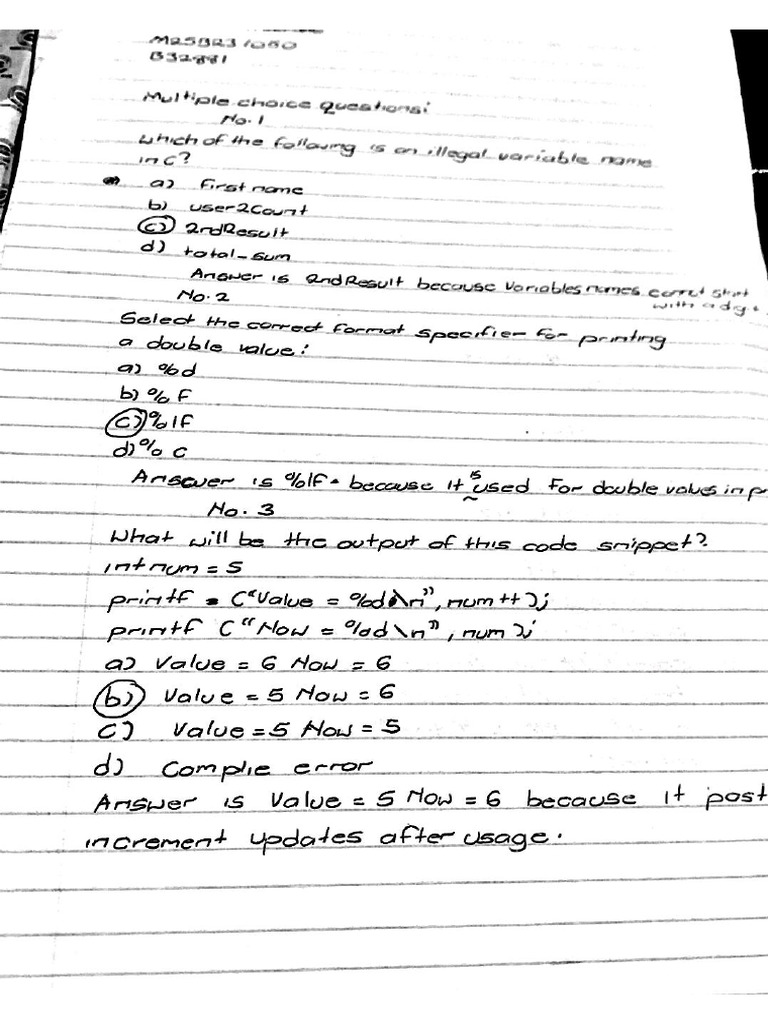 M25B231050
B32881
Multiple choice questions:
No.1
Which of the following is an illegal variable name
in C?
a) First name
b) user2Count
c) 2ndResult
d) total_sum
Answer is 2ndResult because variables names cannot start
with a digit
No.2
Select the correct format specifier for printing
a double value:
a) %d
b) %F
c) %lf
d) % c
Answer is %lf because it is used for double values in pr
No. 3
What will be the output of this code snippet?
int num = 5
printf = ("Value = %d\n", num++);
printf ("Now = %d\n", num);
a) Value = 6 Now = 6
b) Value = 5 Now = 6
c) Value = 5 Now = 5
d) Complie error
Answer is Value = 5 Now = 6 because it post
increment updates after usage.